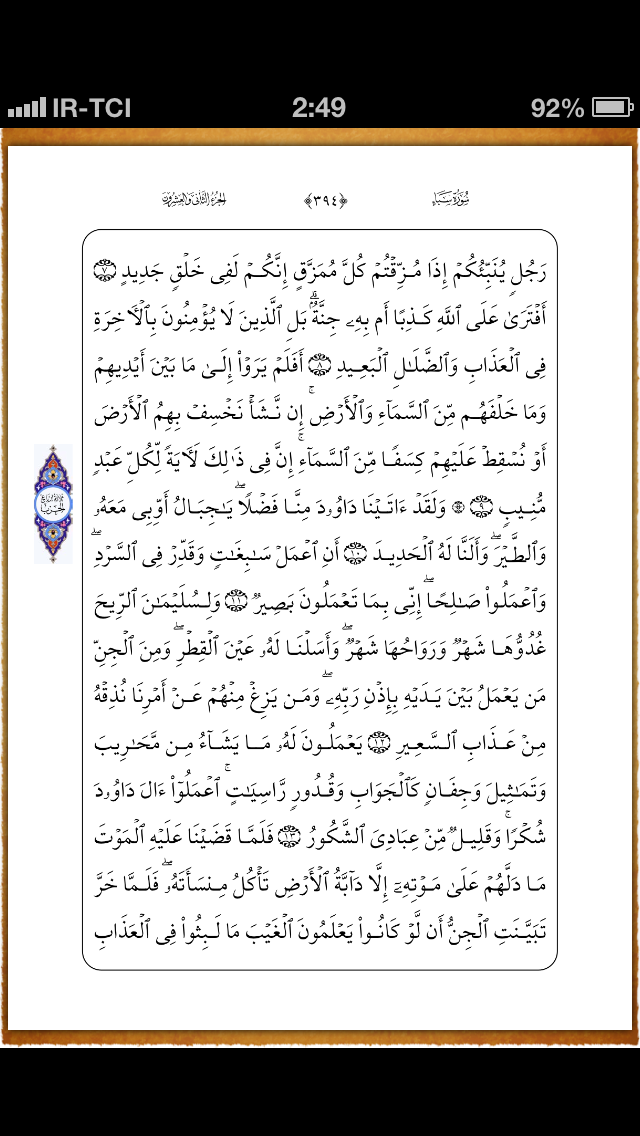 IR-TCI 2:49 92%
سُورَةُ سَبَإٍ ﴿٣٩٤﴾ الجُزءُ الثَّانِي وَالعِشرُونَ
رَجُلٍ يُنَبِّئُكُمْ إِذَا مُزِّقْتُمْ كُلَّ مُمَزَّقٍ إِنَّكُمْ لَفِى خَلْقٍ جَدِيدٍ ٧
أَفْتَرَىٰ عَلَى ٱللَّهِ كَذِبًا أَم بِهِۦ جِنَّةٌۢ ۗ بَلِ ٱلَّذِينَ لَا يُؤْمِنُونَ بِٱلْأَخِرَةِ
فِى ٱلْعَذَابِ وَٱلضَّلَـٰلِ ٱلْبَعِيدِ ٨ أَفَلَمْ يَرَوْا۟ إِلَىٰ مَا بَيْنَ أَيْدِيهِمْ
وَمَا خَلْفَهُم مِّنَ ٱلسَّمَآءِ وَٱلْأَرْضِ ۚ إِن نَّشَأْ نَخْسِفْ بِهِمُ ٱلْأَرْضَ
أَوْ نُسْقِطْ عَلَيْهِمْ كِسَفًا مِّنَ ٱلسَّمَآءِ ۚ إِنَّ فِى ذَٰلِكَ لَأَيَةً لِّكُلِّ عَبْدٍ
مُّنِيبٍ ٩ ۞ وَلَقَدْ ءَاتَيْنَا دَاوُۥدَ مِنَّا فَضْلًا ۖ يَـٰجِبَالُ أَوِّبِى مَعَهُۥ
وَٱلطَّيْرَ ۖ وَأَلَنَّا لَهُ ٱلْحَدِيدَ ١٠ أَنِ ٱعْمَلْ سَـٰبِغَـٰتٍ وَقَدِّرْ فِى ٱلسَّرْدِ ۖ
وَٱعْمَلُوا۟ صَـٰلِحًا ۖ إِنِّى بِمَا تَعْمَلُونَ بَصِيرٌ ١١ وَلِسُلَيْمَـٰنَ ٱلرِّيحَ
غُدُوُّهَا شَهْرٌ وَرَوَاحُهَا شَهْرٌ ۖ وَأَسَلْنَا لَهُۥ عَيْنَ ٱلْقِطْرِ ۖ وَمِنَ ٱلْجِنِّ
مَن يَعْمَلُ بَيْنَ يَدَيْهِ بِإِذْنِ رَبِّهِۦ ۖ وَمَن يَزِغْ مِنْهُمْ عَنْ أَمْرِنَا نُذِقْهُ
مِنْ عَذَابِ ٱلسَّعِيرِ ١٢ يَعْمَلُونَ لَهُۥ مَا يَشَآءُ مِن مَّحَـٰرِيبَ
وَتَمَـٰثِيلَ وَجِفَانٍ كَٱلْجَوَابِ وَقُدُورٍ رَّاسِيَـٰتٍ ۚ ٱعْمَلُوٓا۟ ءَالَ دَاوُۥدَ
شُكْرًا ۚ وَقَلِيلٌ مِّنْ عِبَادِىَ ٱلشَّكُورُ ١٣ فَلَمَّا قَضَيْنَا عَلَيْهِ ٱلْمَوْتَ
مَا دَلَّهُمْ عَلَىٰ مَوْتِهِۦٓ إِلَّا دَآبَّةُ ٱلْأَرْضِ تَأْكُلُ مِنسَأَتَهُۥ ۖ فَلَمَّا خَرَّ
تَبَيَّنَتِ ٱلْجِنُّ أَن لَّوْ كَانُوا۟ يَعْلَمُونَ ٱلْغَيْبَ مَا لَبِثُوا۟ فِى ٱلْعَذَابِ